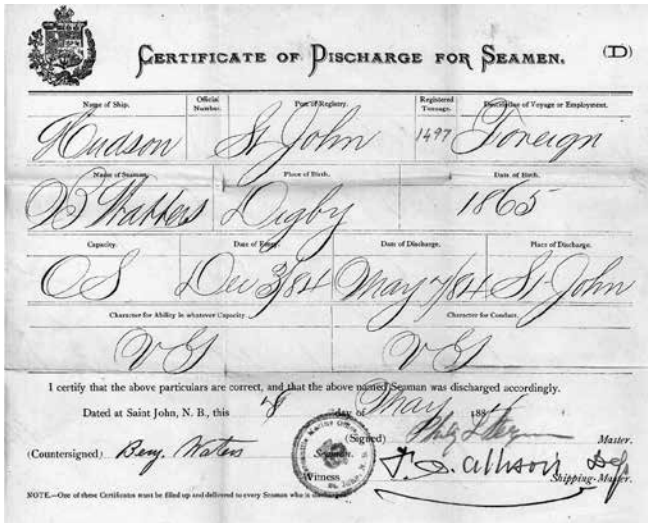 CERTIFICATE OF DISCHARGE FOR SEAMEN. (D)
Name of Ship. Official Number. Port of Registry. Registered Tonnage. Description of Voyage or Employment.
Hudson St John 1497 Foreign
Name of Seaman. Place of Birth. Date of Birth.
B Watters Digby 1865
Capacity. Date of Entry. Date of Discharge. Place of Discharge.
OS Dec 3/84 May 7/84 St John
Character for Ability in whatever Capacity. Character for Conduct.
VG VG
I certify that the above particulars are correct, and that the above named Seaman was discharged accordingly.
Dated at Saint John, N. B., this 8 day of May 188
(Signed) Master.
(Countersigned) Benj. Waters Seaman.
Witness J. D. Allison
Shipping-Master.
NOTE.—One of these Certificates must be filled up and delivered to every Seaman who is discharged